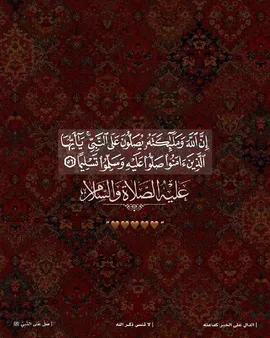 إِنَّ اللَّهَ وَمَلَٰٓئِكَتَهُۥ يُصَلُّونَ عَلَى النَّبِيِّ ۚ يَٰٓأَيُّهَا
الَّذِينَ ءَامَنُوا صَلُّوا عَلَيْهِ وَسَلِّمُوا تَسْلِيمًا ٥٦
عليه الصلاة والسلام
| صل على النبي ﷺ | لا تنسى ذكر الله | الدال على الخير كفاعله